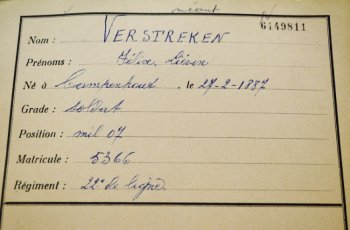 néant
6149811
Nom : VERSTREKEN
Prénoms : Félix, Liévin
Né à Campenhout , le 27-2-1887
Grade : soldat
Position : mil 07
Matricule : 5366
Régiment : 22e de ligne